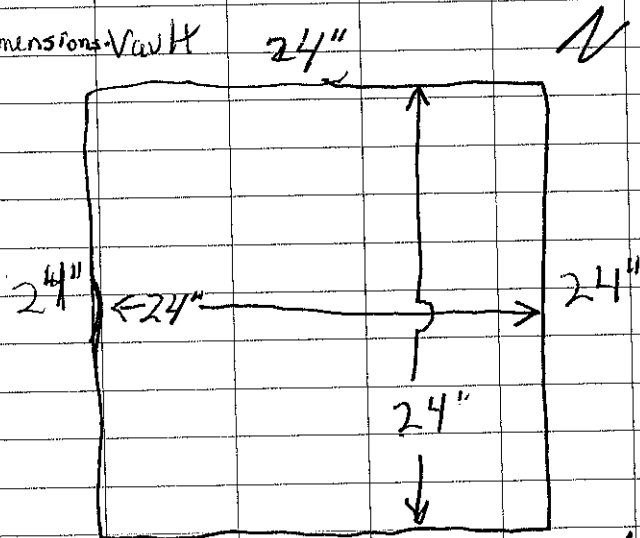 mensions. Vault
24"
N
24"
24"
24"
24"